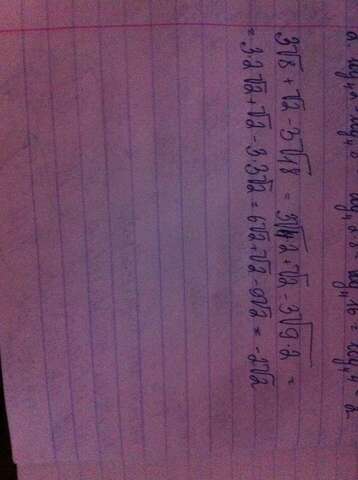 3√8 + √2 - 3√18 = 3√4·2 + √2 - 3√9·2 =
= 3·2√2 + √2 - 3·3√2 = 6√2 + √2 - 9√2 = -2√2